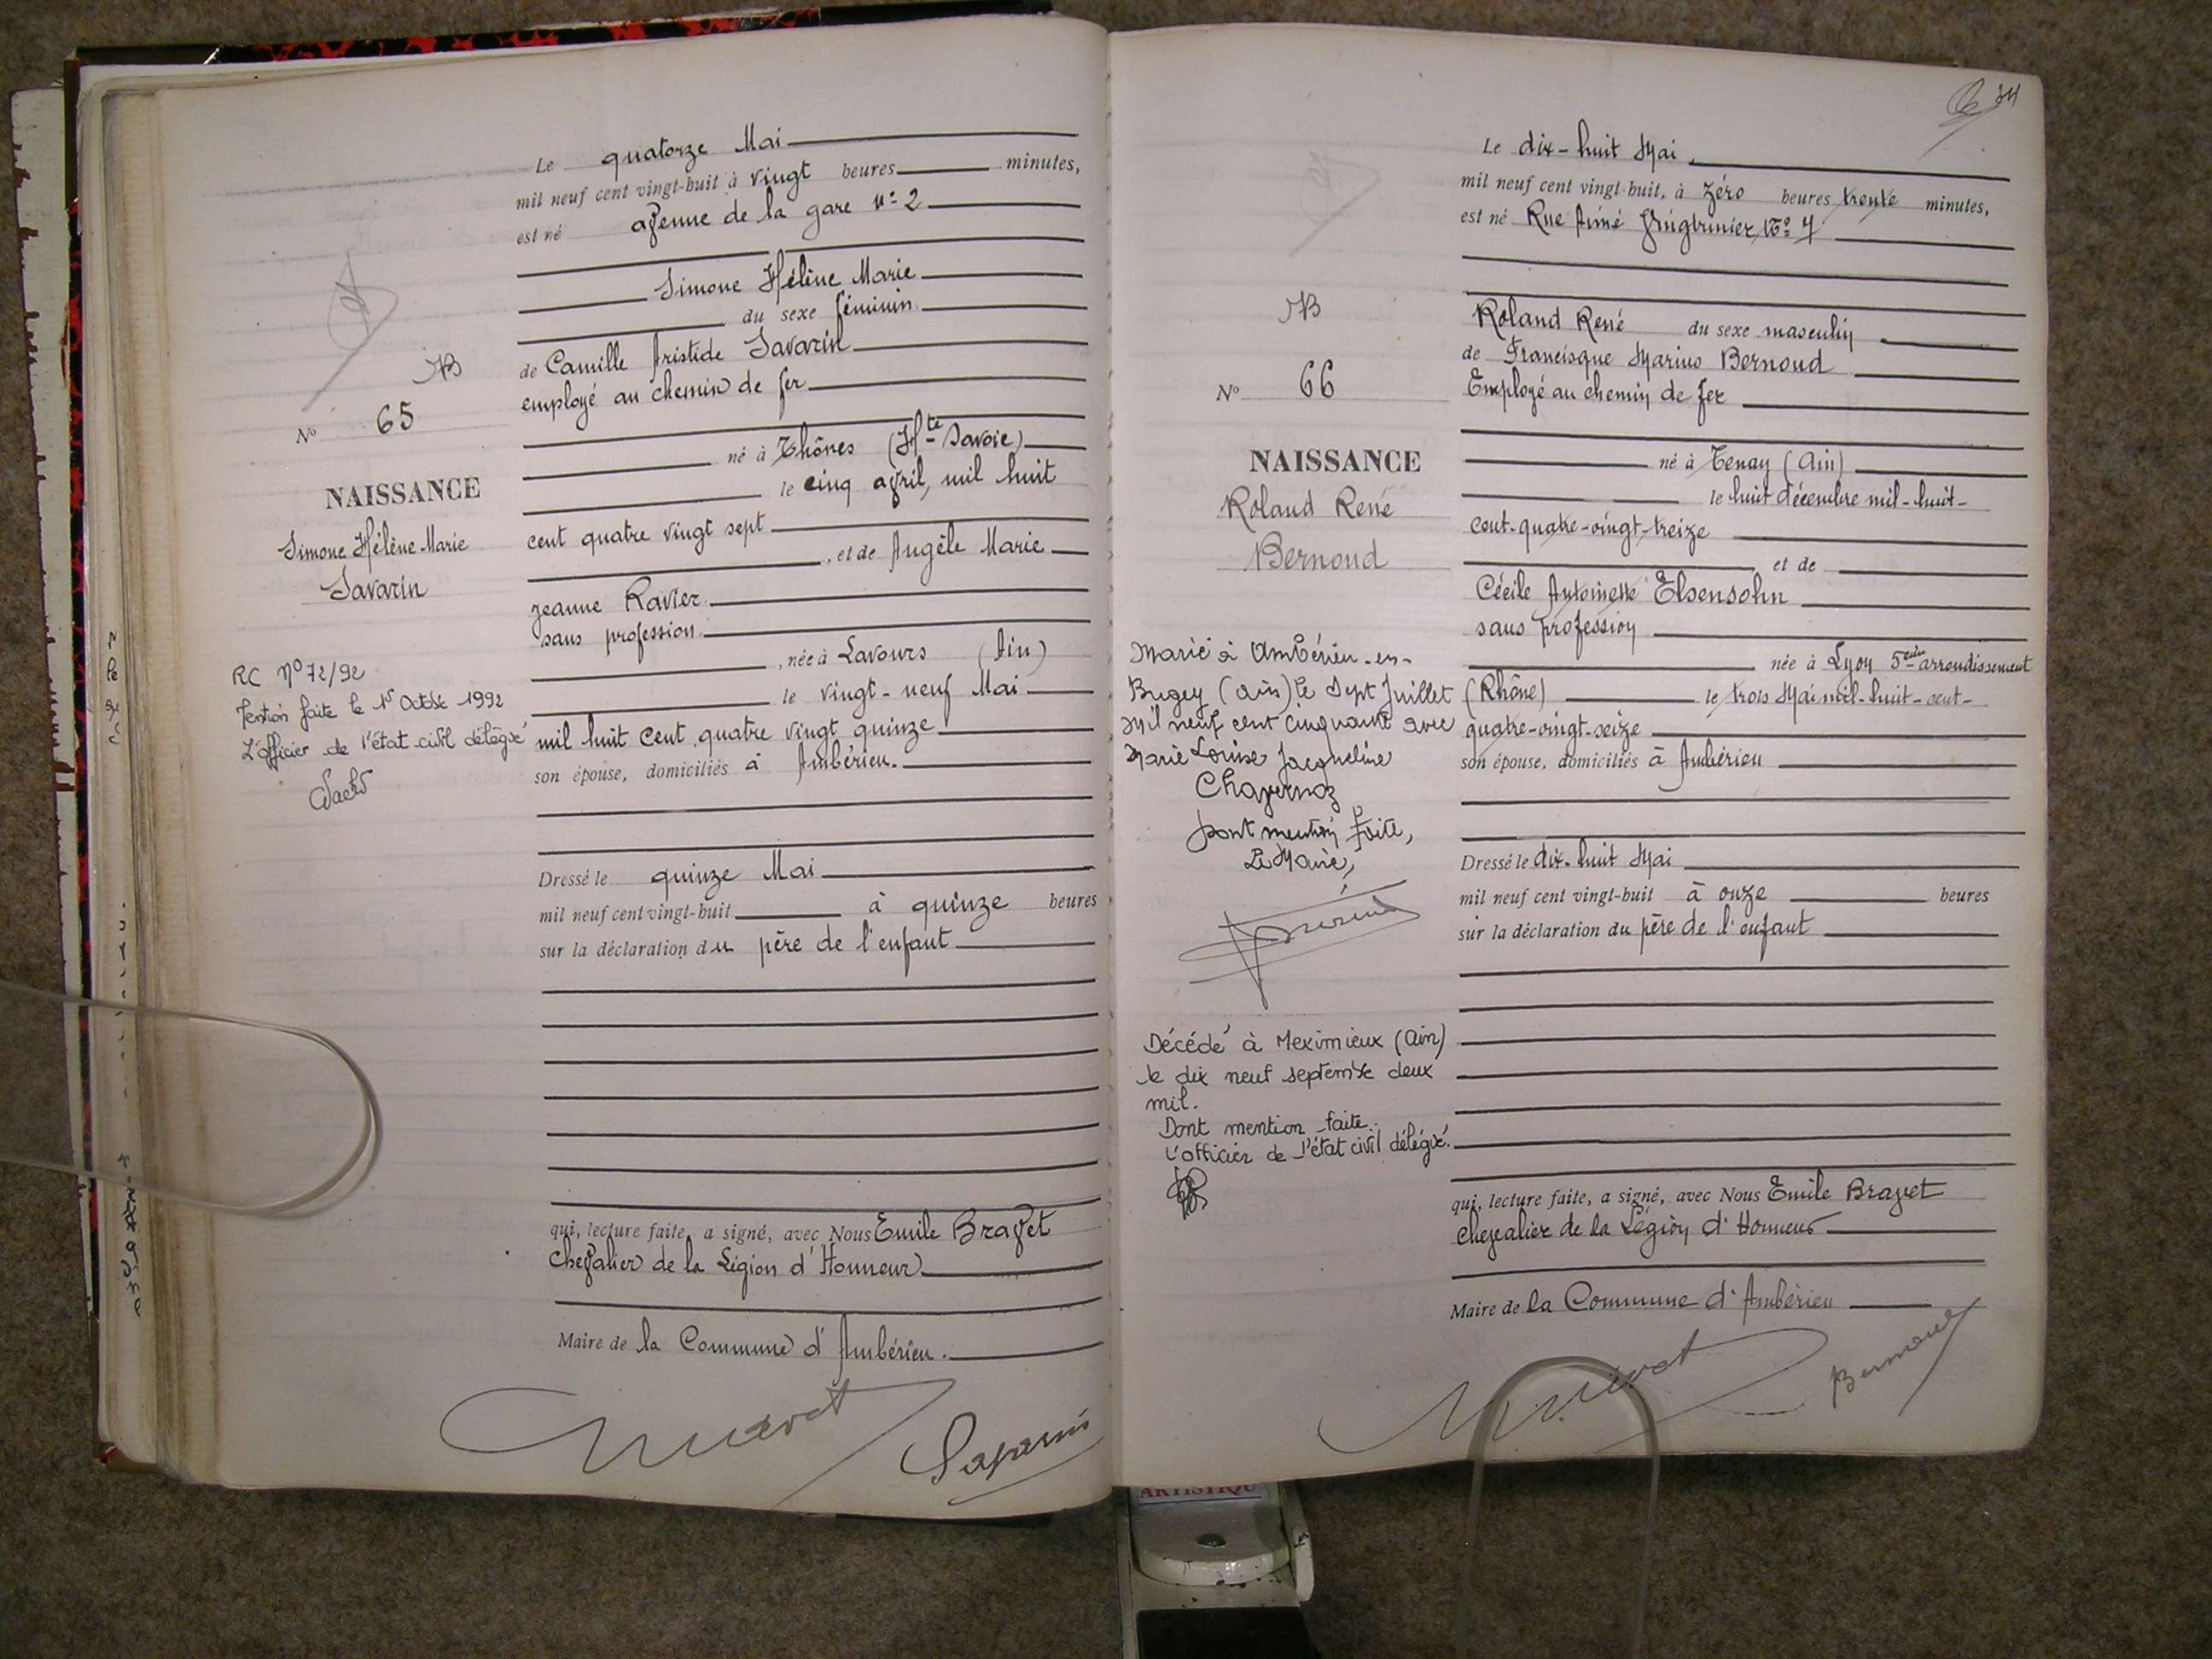 Le quatorze Mai
mil neuf cent vingt-huit à vingt heures minutes,
est né avenue de la gare n° 2
Simone Hélène Marie
du sexe féminin
de Camille Aristide Savarin
employé au chemin de fer
né à Thônes (Hte Savoie)
le cinq avril, mil huit
cent quatre vingt sept
, et de Angèle Marie
Jeanne Ravier
sans profession
, née à Lavours (Ain)
le vingt-neuf Mai
mil huit cent quatre vingt quinze
son épouse, domiciliés à Ambérieu.
Dressé le quinze Mai
mil neuf cent vingt-huit à quinze heures
sur la déclaration du père de l'enfant
qui, lecture faite, a signé, avec Nous Emile Bravet
Chevalier de la Légion d'Honneur
Maire de la Commune d'Ambérieu.
N° 65
NAISSANCE
Simone Hélène Marie
Savarin
RC N° 72/92
Mention faite le 1er Octobre 1992
L'officier de l'état civil délégué
34
Le dix-huit Mai
mil neuf cent vingt-huit, à zéro heures trente minutes,
est né Rue Aimé N° 7
Roland René du sexe masculin
de Francisque Marius Bernoud
Employé au chemin de fer
né à Tenay (Ain)
le huit décembre mil-huit-
cent-quatre-vingt-treize
et de
Cécile Antoinette Elsensohn
sans profession
née à Lyon 5eme arrondissement
(Rhône) le trois Mai mil-huit-cent-
quatre-vingt-seize
son épouse, domiciliés à Ambérieu
Dressé le dix-huit Mai
mil neuf cent vingt-huit à onze heures
sur la déclaration du père de l'enfant
qui, lecture faite, a signé, avec Nous Emile Bravet
Chevalier de la Légion d'Honneur
Maire de la Commune d'Ambérieu
Bernoud
N° 66
NAISSANCE
Roland René
Bernoud
Marié à Ambérieu-en-
Bugey (Ain) le Sept Juillet
Mil neuf cent cinquante avec
Marie Louise Jacqueline
Chavernoz
Dont mention faite,
Le Maire,
Décédé à Meximieux (Ain)
le dix neuf septembre deux
mil.
Dont mention faite.
L'officier de l'état civil délégué.
ARTISTIQU